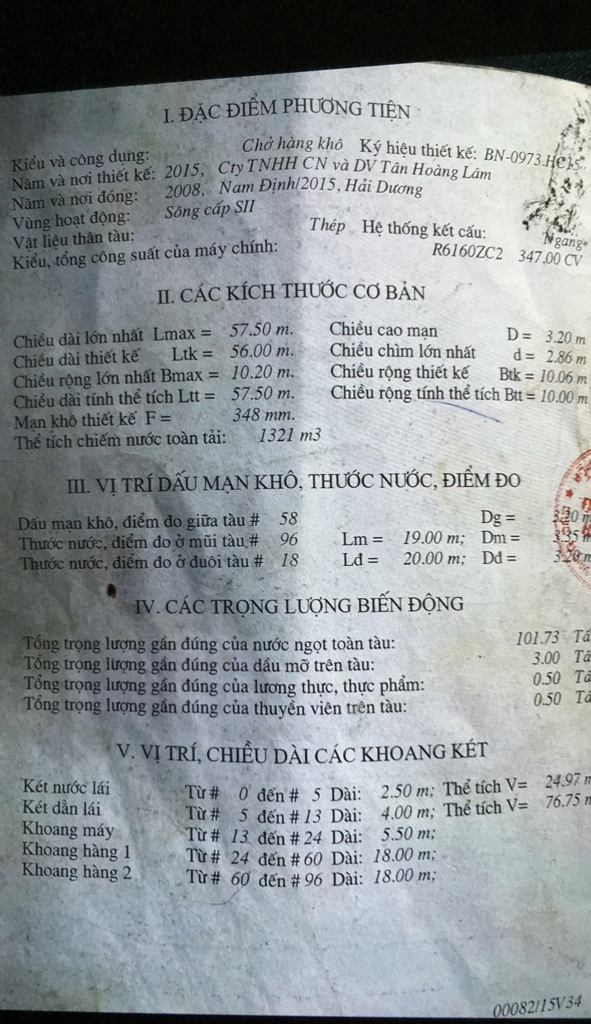 I. ĐẶC ĐIỂM PHƯƠNG TIỆN
Kiểu và công dụng: Chở hàng khô Ký hiệu thiết kế: BN-0973.HC15
Năm và nơi thiết kế: 2015, Cty TNHH CN và DV Tân Hoàng Lâm
Năm và nơi đóng: 2008, Nam Định/2015, Hải Dương
Vùng hoạt động: Sông cấp SII
Vật liệu thân tàu: Thép Hệ thống kết cấu: Ngang
Kiểu, tổng công suất của máy chính: R6160ZC2 347.00 CV
II. CÁC KÍCH THƯỚC CƠ BẢN
Chiều dài lớn nhất Lmax = 57.50 m. Chiều cao mạn D = 3.20 m
Chiều dài thiết kế Ltk = 56.00 m. Chiều chìm lớn nhất d = 2.86 m
Chiều rộng lớn nhất Bmax = 10.20 m. Chiều rộng thiết kế Btk = 10.06 m
Chiều dài tính thể tích Ltt = 57.50 m. Chiều rộng tính thể tích Btt = 10.00 m
Mạn khô thiết kế F = 348 mm.
Thể tích chiếm nước toàn tải: 1321 m3
III. VỊ TRÍ DẤU MẠN KHÔ, THƯỚC NƯỚC, ĐIỂM ĐO
Dấu mạn khô, điểm đo giữa tàu # 58 Dg = 3.20 m
Thước nước, điểm đo ở mũi tàu # 96 Lm = 19.00 m; Dm = 3.35 m
Thước nước, điểm đo ở đuôi tàu # 18 Lđ = 20.00 m; Dđ = 3.20 m
IV. CÁC TRỌNG LƯỢNG BIẾN ĐỘNG
Tổng trọng lượng gần đúng của nước ngọt toàn tàu: 101.73 Tấ
Tổng trọng lượng gần đúng của dầu mỡ trên tàu: 3.00 Tấ
Tổng trọng lượng gần đúng của lương thực, thực phẩm: 0.50 Tấ
Tổng trọng lượng gần đúng của thuyền viên trên tàu: 0.50 Tấ
V. VỊ TRÍ, CHIỀU DÀI CÁC KHOANG KÉT
Két nước lái Từ # 0 đến # 5 Dài: 2.50 m; Thể tích V= 24.97 m
Két dằn lái Từ # 5 đến # 13 Dài: 4.00 m; Thể tích V= 76.75 m
Khoang máy Từ # 13 đến # 24 Dài: 5.50 m;
Khoang hàng 1 Từ # 24 đến # 60 Dài: 18.00 m;
Khoang hàng 2 Từ # 60 đến # 96 Dài: 18.00 m;
00082/15V34